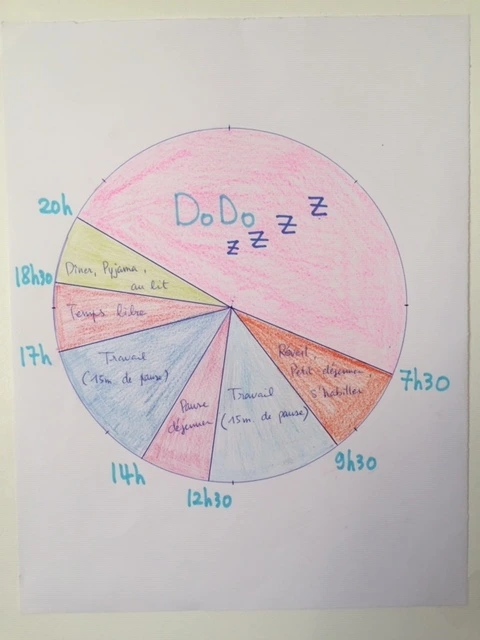 20h
DoDo
z z z z
Dîner, Pyjama,
au lit
18h30
Temps libre
17h
Travail
(15m. de pause)
14h
Pause
déjeuner
12h30
Travail
(15m. de pause)
9h30
Réveil,
Petit déjeuner,
s'habiller
7h30